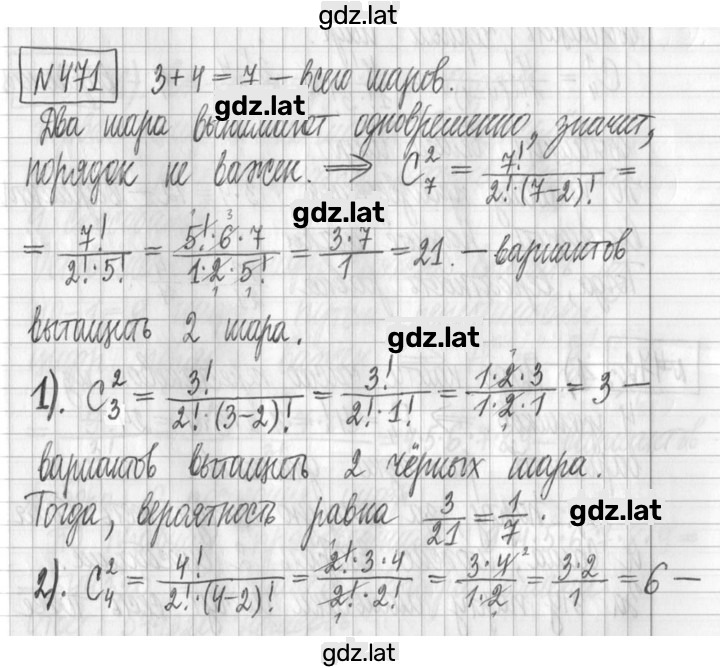 gdz.lat
№471 3+4=7 – всего шаров.
gdz.lat
Два шара вынимают одновременно, значит,
порядок не важен. ⇒ C₇² = 7!/(2!·(7-2)!) =
gdz.lat
= 7!/(2!·5!) = (5!·6·7)/(1·2·5!) = (3·7)/1 = 21. – вариантов
вытащить 2 шара.
gdz.lat
1). C₃² = 3!/(2!·(3-2)!) = 3!/(2!·1!) = (1·2·3)/(1·2·1) = 3 –
вариантов вытащить 2 чёрных шара.
Тогда, вероятность равна 3/21 = 1/7.
gdz.lat
2). C₄² = 4!/(2!·(4-2)!) = (2!·3·4)/(2!·2!) = (3·4)/(1·2) = (3·2)/1 = 6 –
gdz.lat